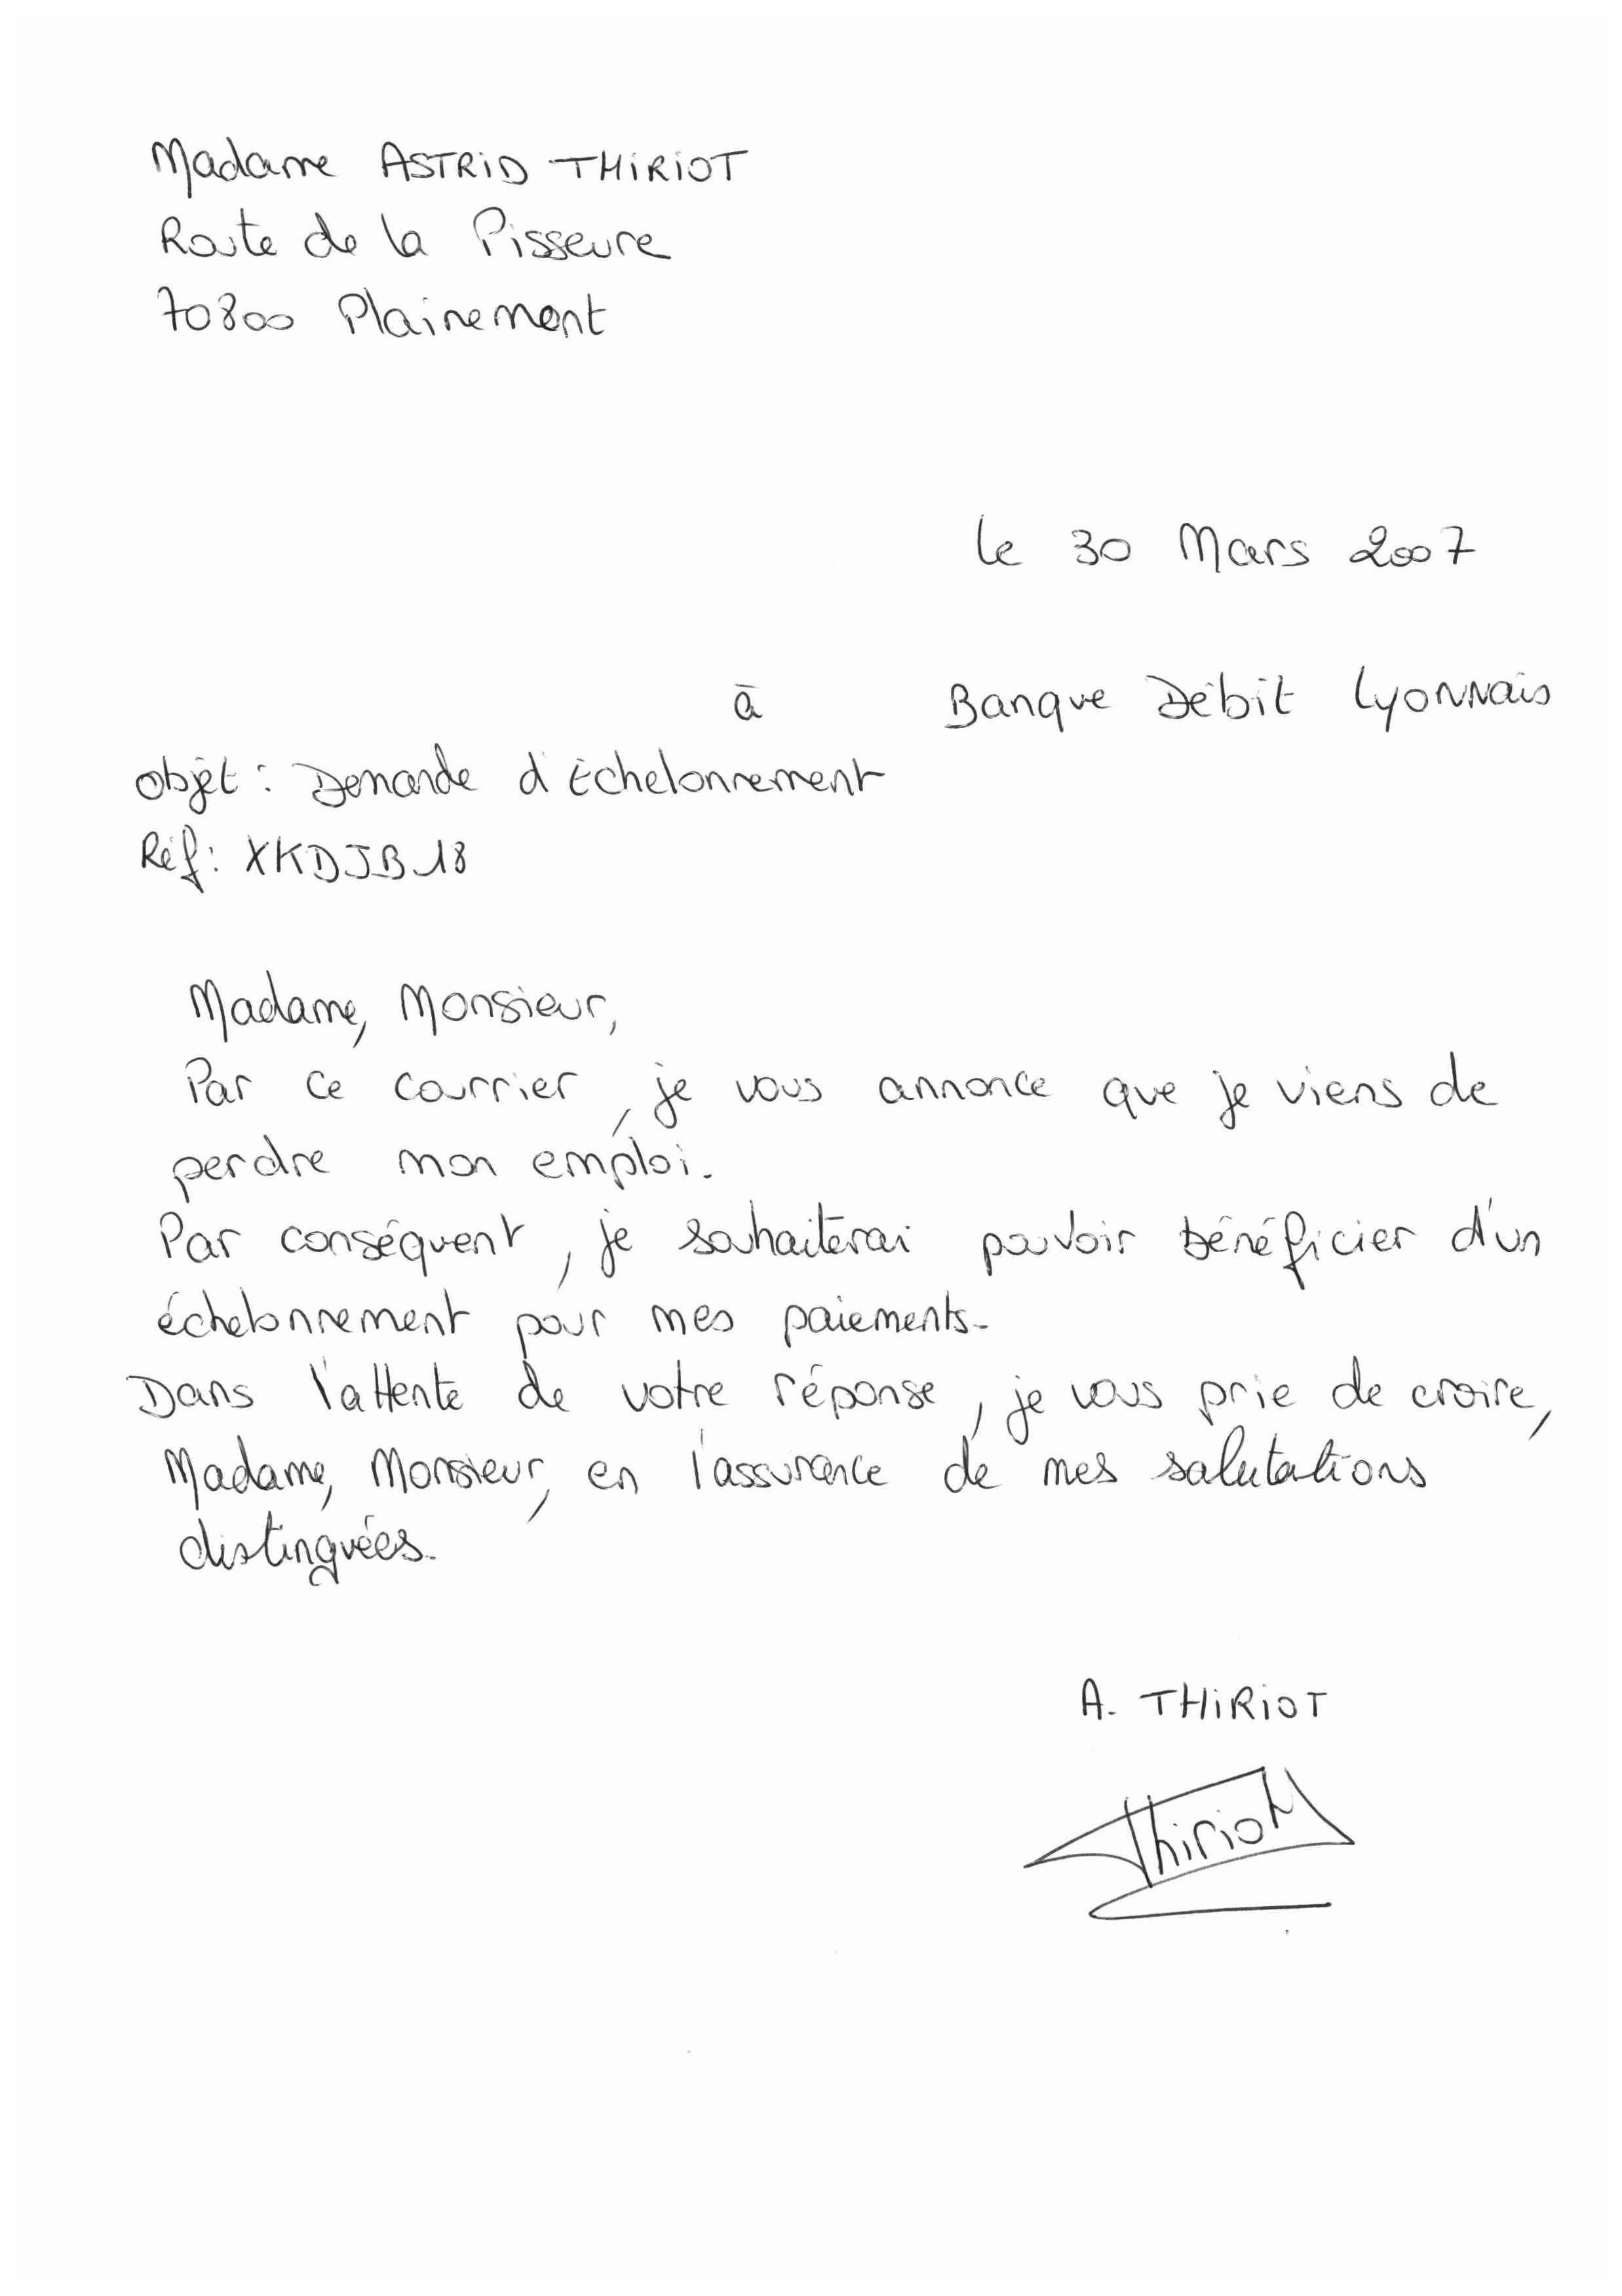 Madame ASTRID THIRIOT
Route de la Pisseure
70800 Plainemont
le 30 Mars 2007
à Banque Débit Lyonnais
Objet : Demande d'échelonnement
Réf : XKDJB18
Madame, Monsieur,
Par ce courrier, je vous annonce que je viens de
perdre mon emploi.
Par conséquent, je souhaiterai pouvoir bénéficier d'un
échelonnement pour mes paiements.
Dans l'attente de votre réponse, je vous prie de croire,
Madame, Monsieur, en l'assurance de mes salutations
distinguées.
A. THIRIOT
Thiriot